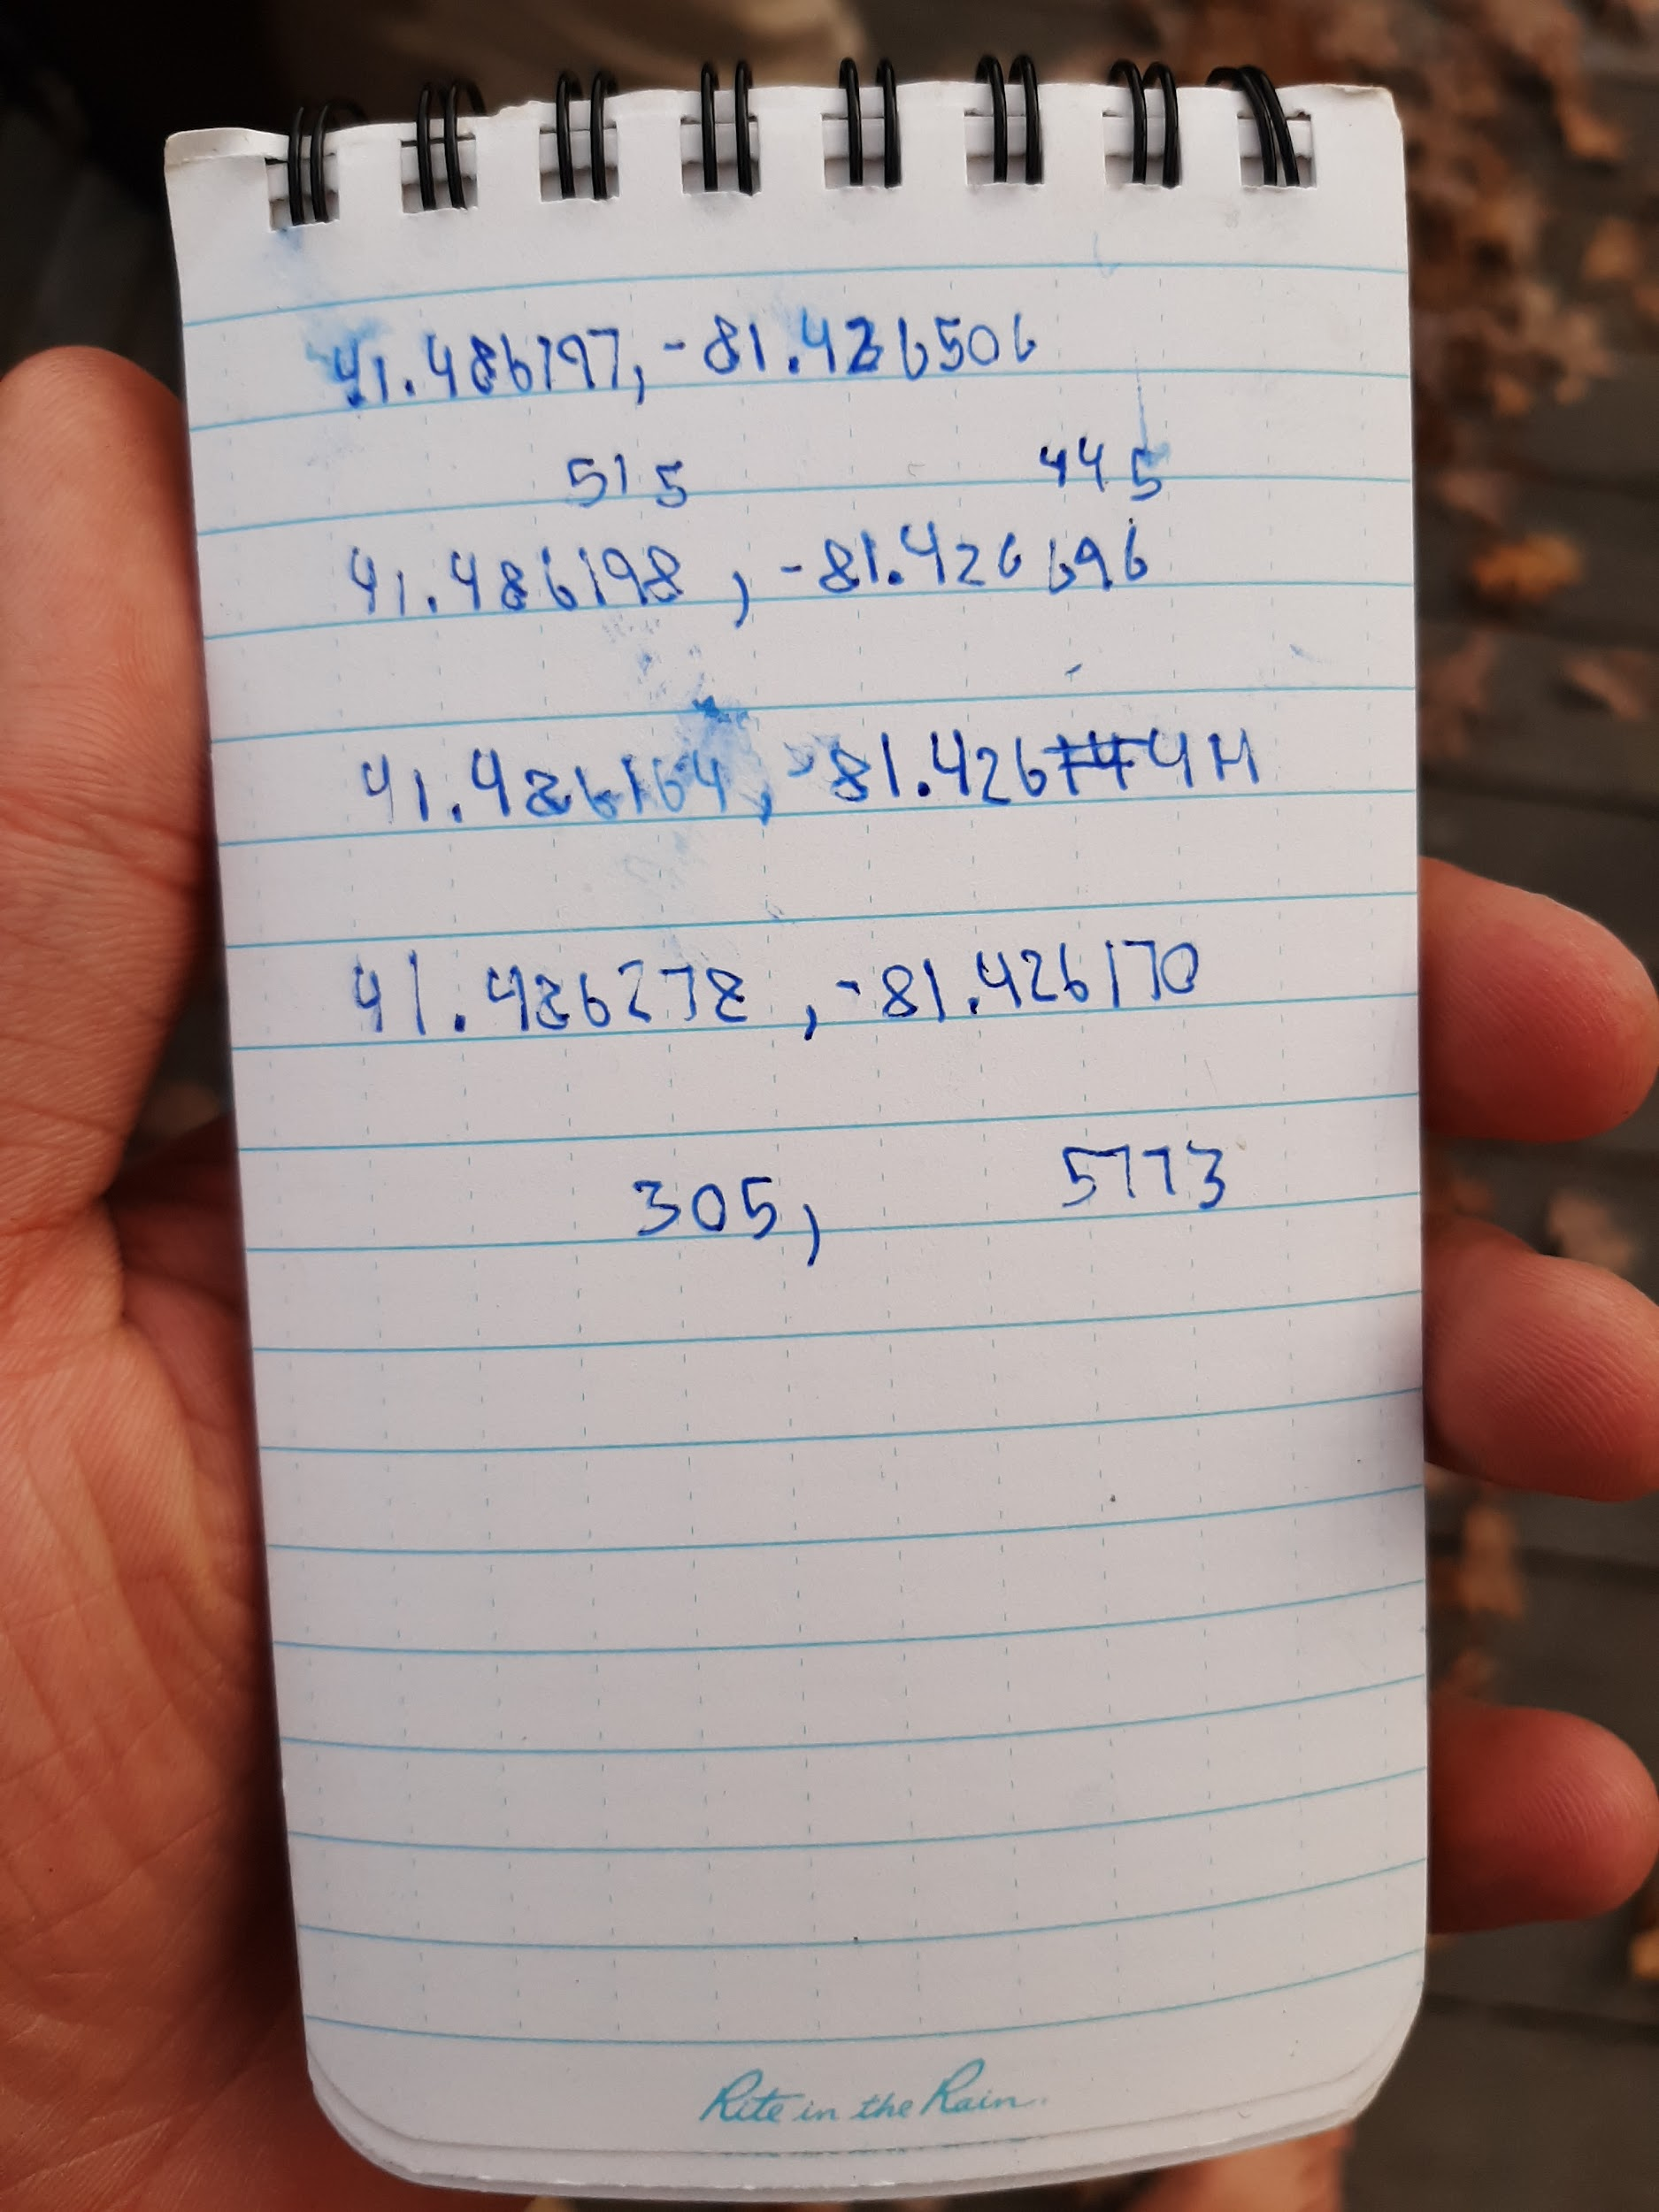 41.486197, -81.426506
515 445
41.486198, -81.426696
41.486164, -81.426744411
41.486278, -81.426170
305, 5773
Rite in the Rain.